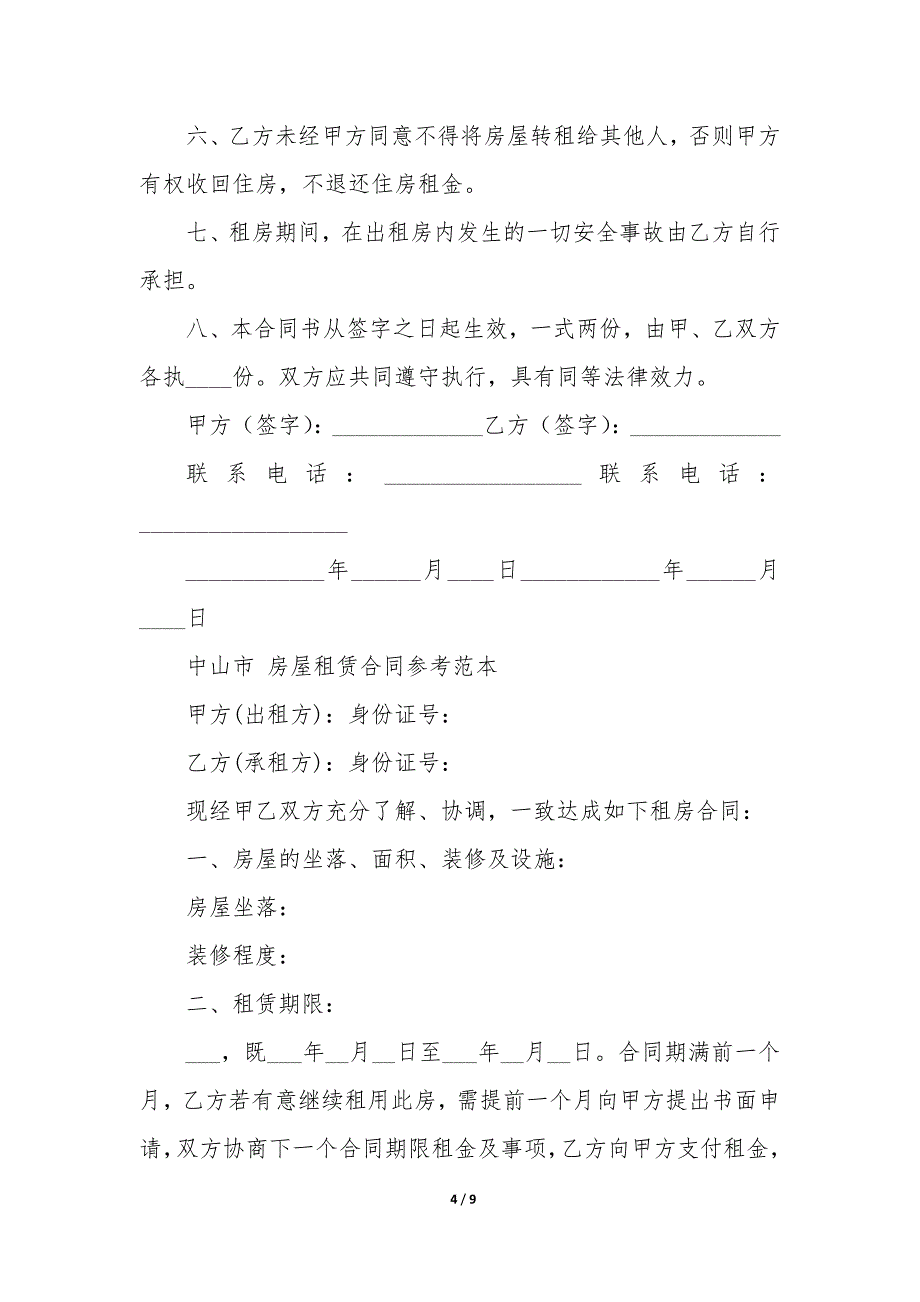 六、乙方未经甲方同意不得将房屋转租给其他人，否则甲方
有权收回住房，不退还住房租金。
七、租房期间，在出租房内发生的一切安全事故由乙方自行
承担。
八、本合同书从签字之日起生效，一式两份，由甲、乙双方
各执____份。双方应共同遵守执行，具有同等法律效力。
甲方（签字）：_____________乙方（签字）：_____________
联系电话：_________________联系电话：
__________________
____________年______月____日____________年______月
____日
中山市 房屋租赁合同参考范本
甲方(出租方)：身份证号：
乙方(承租方)：身份证号：
现经甲乙双方充分了解、协调，一致达成如下租房合同：
一、房屋的坐落、面积、装修及设施：
房屋坐落：
装修程度：
二、租赁期限：
___，既___年__月__日至___年__月__日。合同期满前一个
月，乙方若有意继续租用此房，需提前一个月向甲方提出书面申
请，双方协商下一个合同期限租金及事项，乙方向甲方支付租金，
4 / 9